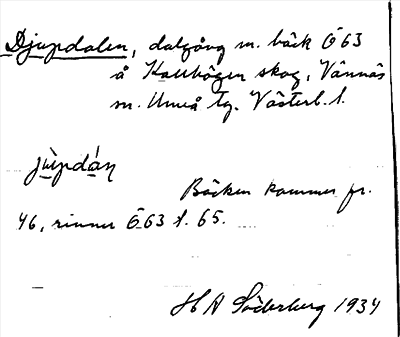 Djupdalen, dalgång m. bäck Ö 63
å Kallhögen skog, Vännäs
sn. Umeå tg. Västerb. l.
jùpdán
Bäcken kommer fr.
46, rinner Ö 63 t. 65.
H A Söderberg 1934